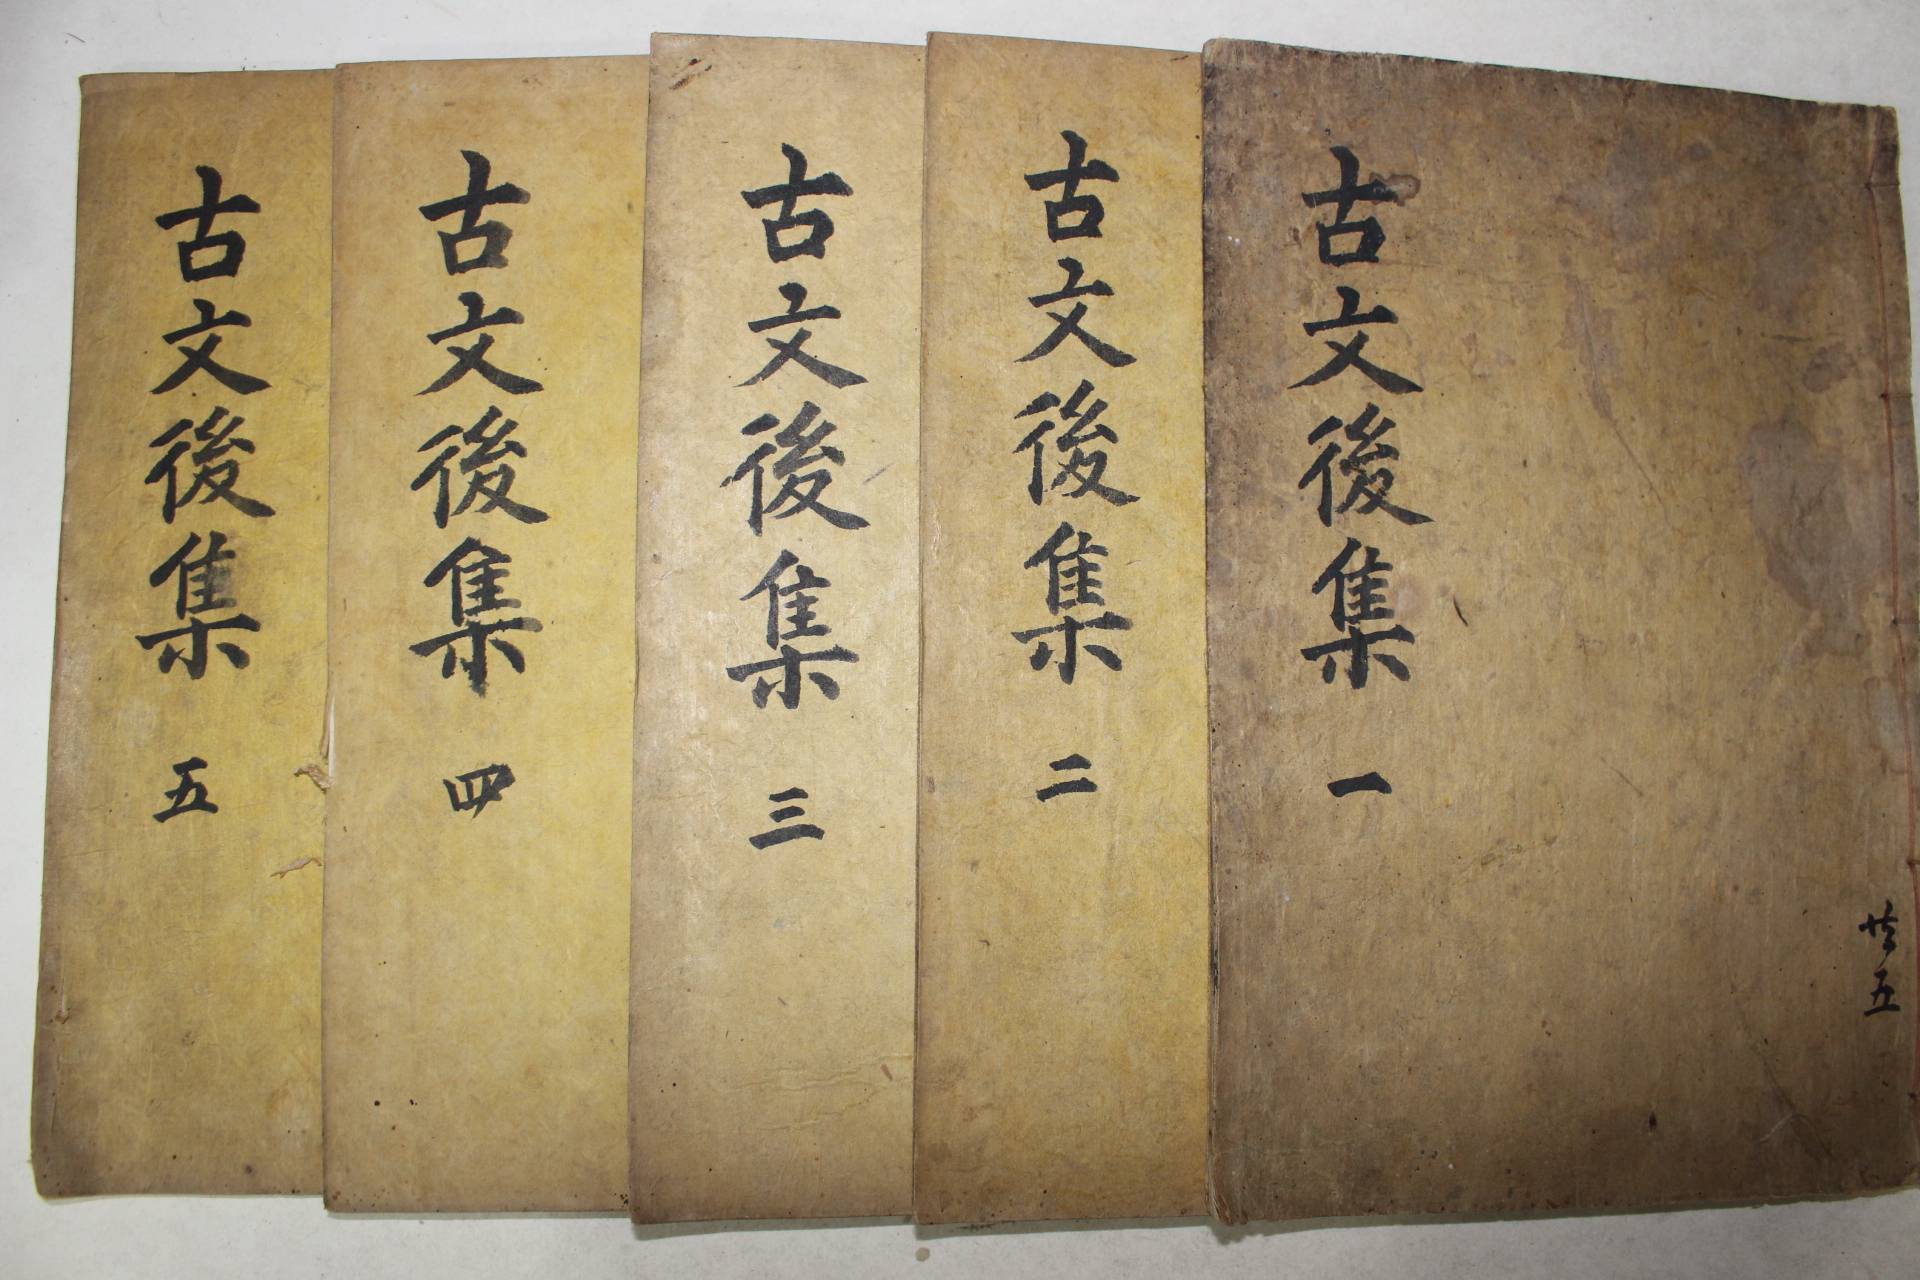 古文後集 一
廿五
古文後集 二
古文後集 三
古文後集 四
古文後集 五